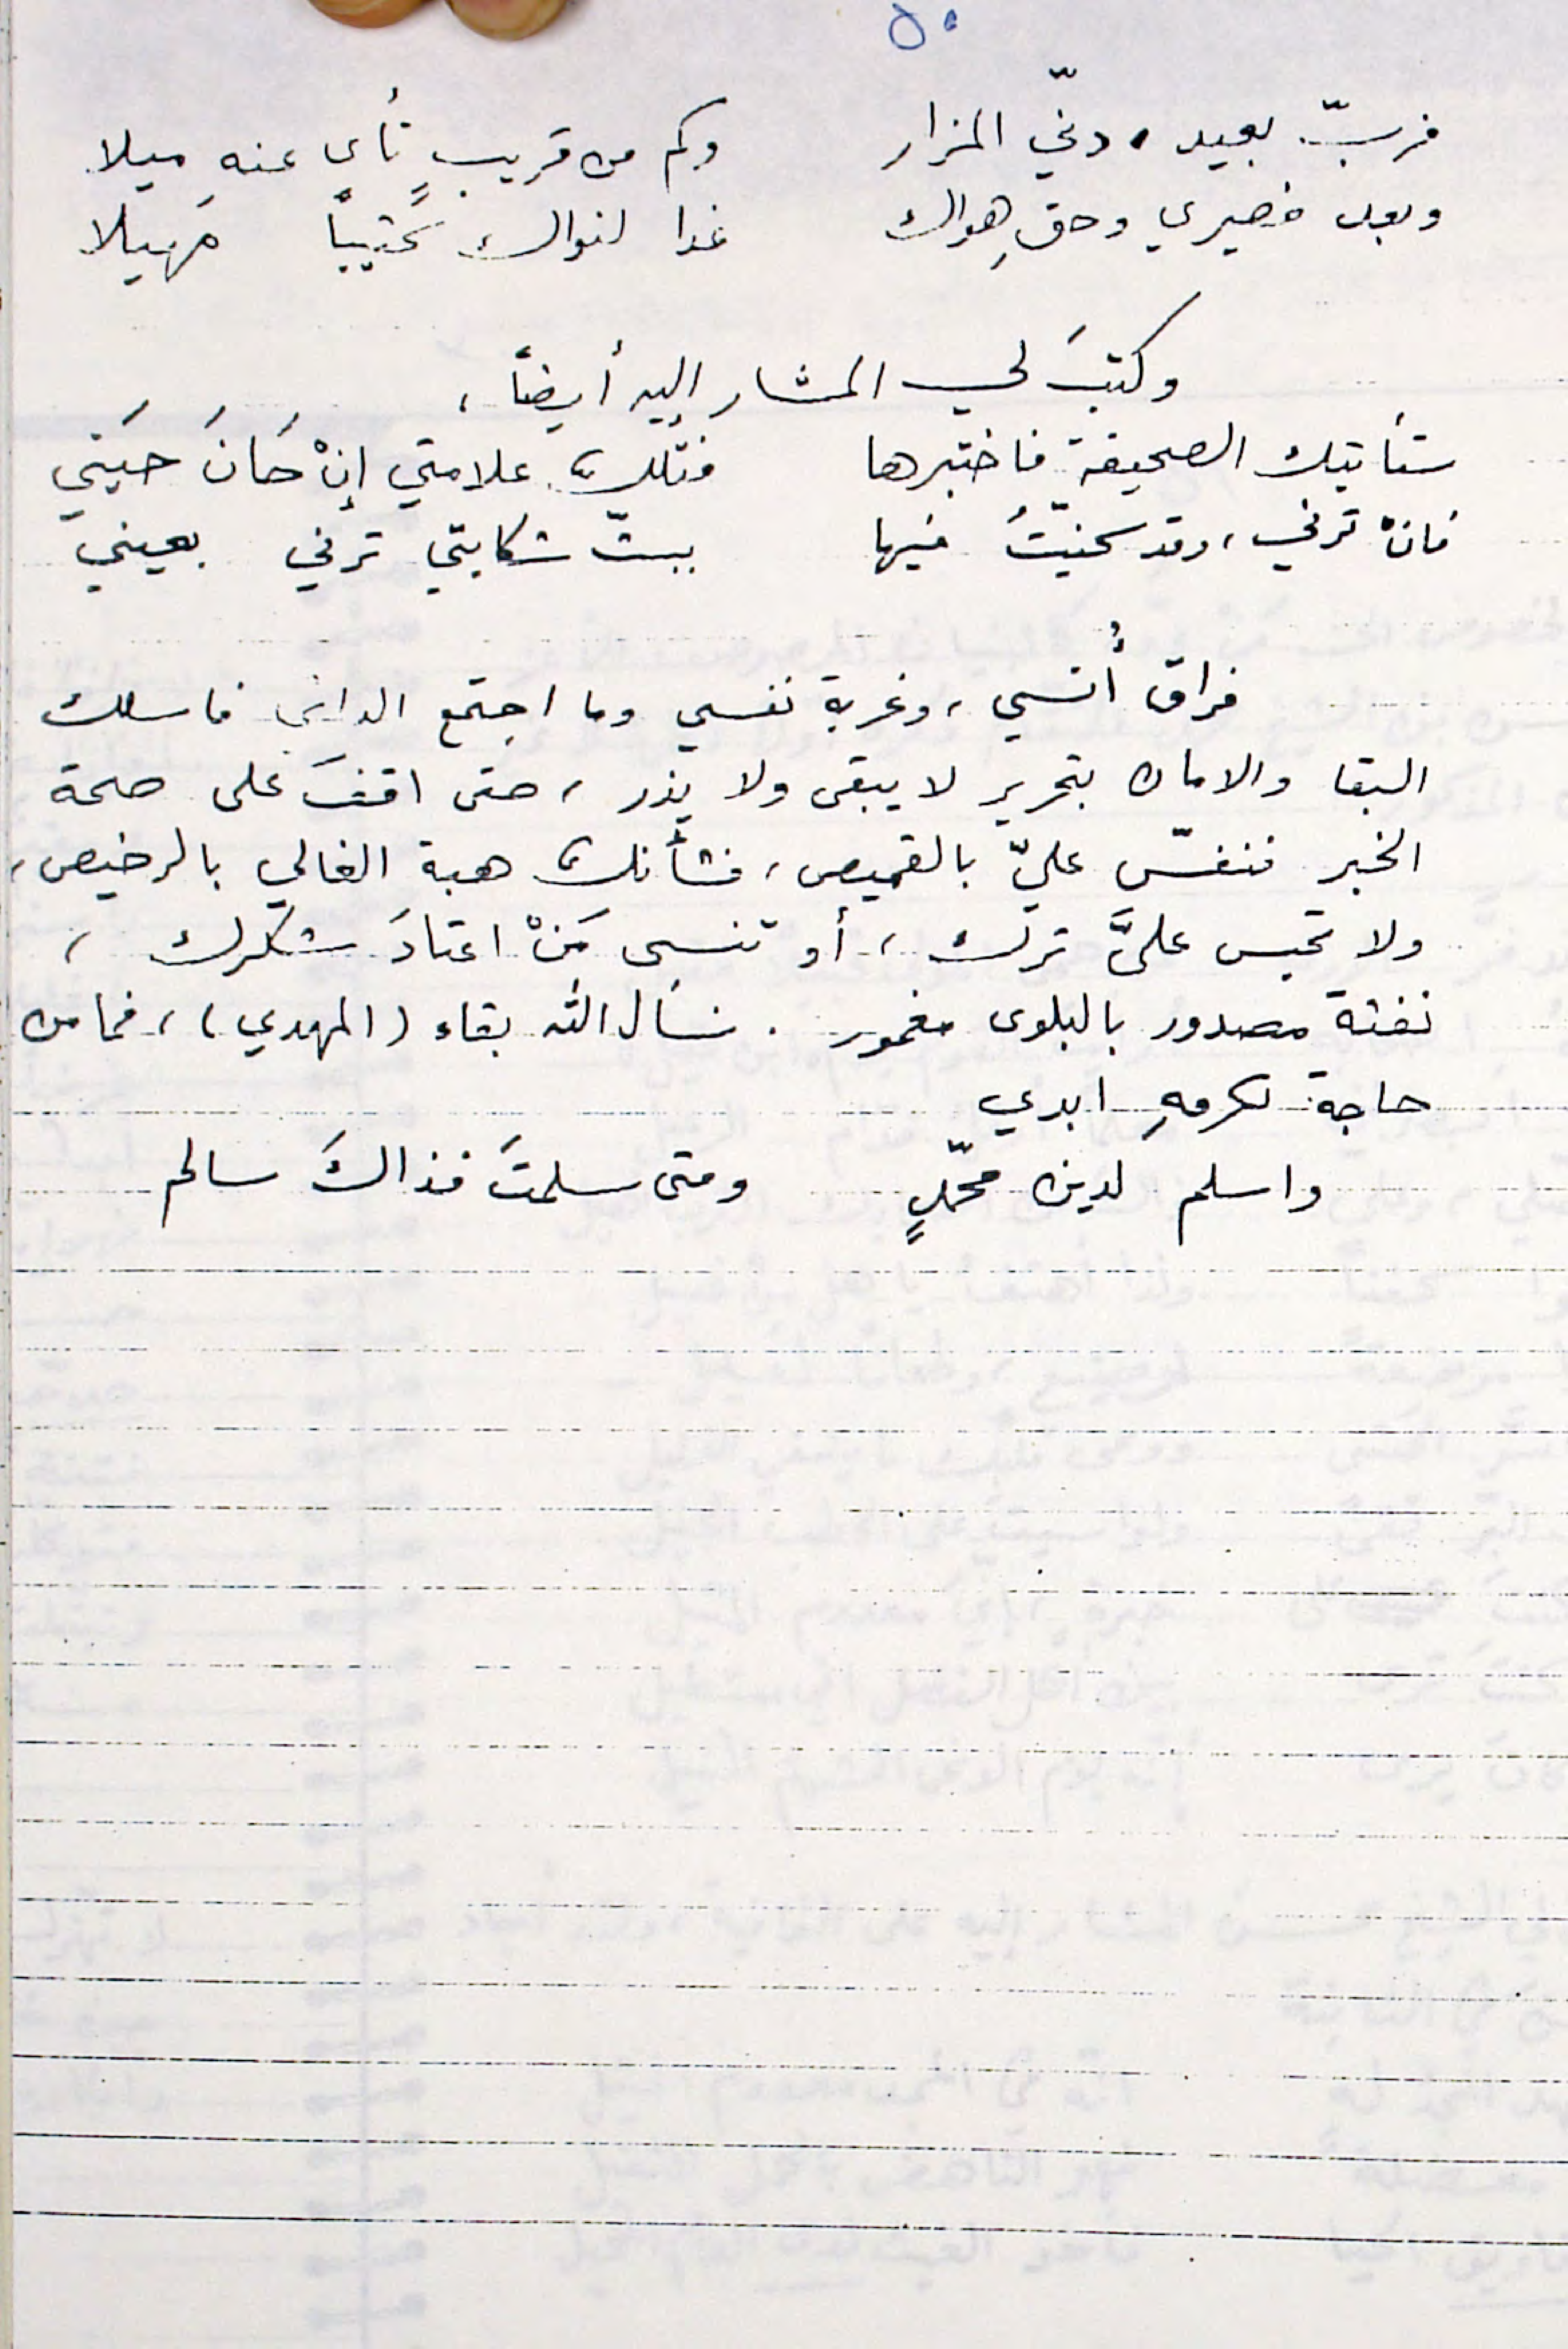 ٥٠
فربّ بعيد، دنيّ المزار وكم من قريبٍ نأى عنه ميلا
وبعد فصبري وحقِ هواك غدا لنواك كثيباً مَهيلا
وكتبَ لي المشار إليه أيضاً،
ستأتيك الصحيفة فاختبرها فتلك علامتي إنْ حَانَ حَيَني
فانْ ترني، وقد سخنيتُ فيها ببثّ شكايتي ترني بعيني
فراق أُنسي، وغربة نفسي وما اجتمع الداني فاسلك
البقا والامان بتحرير لا يبقى ولا يذر، حتى اقفَ على صحة
الخبر فنفسّ عليّ بالقميص، فشأنك هبة الغالي بالرخيص،
ولا تحبس عليَّ ترك، أو تنسى مَنْ اعتادَ شكرك،
نفثة مصدور بالبلوى مغمور. نسأل الله بقاء (المهدي)، فما من
حاجة لكرمهِ ابدي
واسلم لدين محمّدٍ ومتى سلمتَ فذاكَ سالم